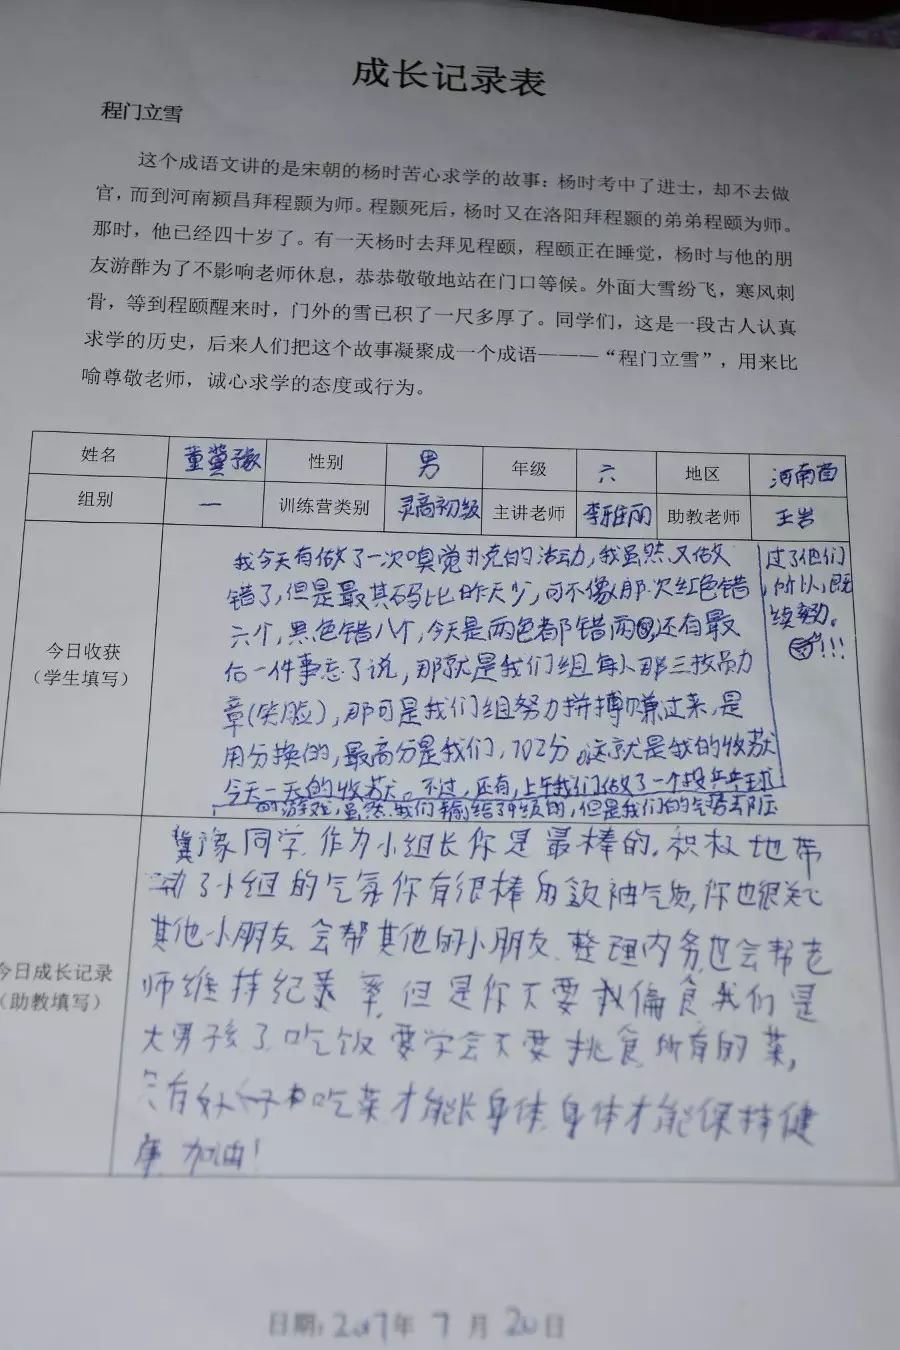 成长记录表
程门立雪
这个成语文讲的是宋朝的杨时苦心求学的故事：杨时考中了进士，却不去做
官，而到河南颍昌拜程颢为师。程颢死后，杨时又在洛阳拜程颢的弟弟程颐为师。
那时，他已经四十岁了。有一天杨时去拜见程颐，程颐正在睡觉，杨时与他的朋
友游酢为了不影响老师休息，恭恭敬敬地站在门口等候。外面大雪纷飞，寒风刺
骨，等到程颐醒来时，门外的雪已积了一尺多厚了。同学们，这是一段古人认真
求学的历史，后来人们把这个故事凝聚成一个成语———“程门立雪”，用来比
喻尊敬老师，诚心求学的态度或行为。
姓名 董冀豫 性别 男 年级 六 地区 河南
组别 一 训练营类别 灵高初级 主讲老师 李雅丽 助教老师 王岩
今日收获
（学生填写）
我今天有做了一次嗅觉扑克的活动，我虽然又做
错了，但是最其码比昨天少，可不像那次红色错
六个，黑色错八个，今天是两色都错两，还有最
后一件事忘了说，那就是我们组每人那三枚
章（笑脸），那可是我们组努力拼搏赚过来，是
用分换的，最高分是我们，702分。这就是我的收获
今天一天的收获。不过，还有，上午我们做了一个投乒乓球
的游戏，虽然我们输给了的，但是我们的气势去阝压
过了他们
，所以，
续努力。
!!!
今日成长记录
（助教填写）
冀豫同学，作为小组长你是最棒的，积极地带
动了小组的气氛你有很棒的领袖气质，你也很关心
其他小朋友，会帮其他的小朋友整理内务，也会帮老
师维持纪，但是你不要偏食，我们是
大男孩了，吃饭要学会不要挑食所有的菜，
只有好好吃菜才能长身体，身体才能保持健
康，加油！
日期：2017年 7 月 20日